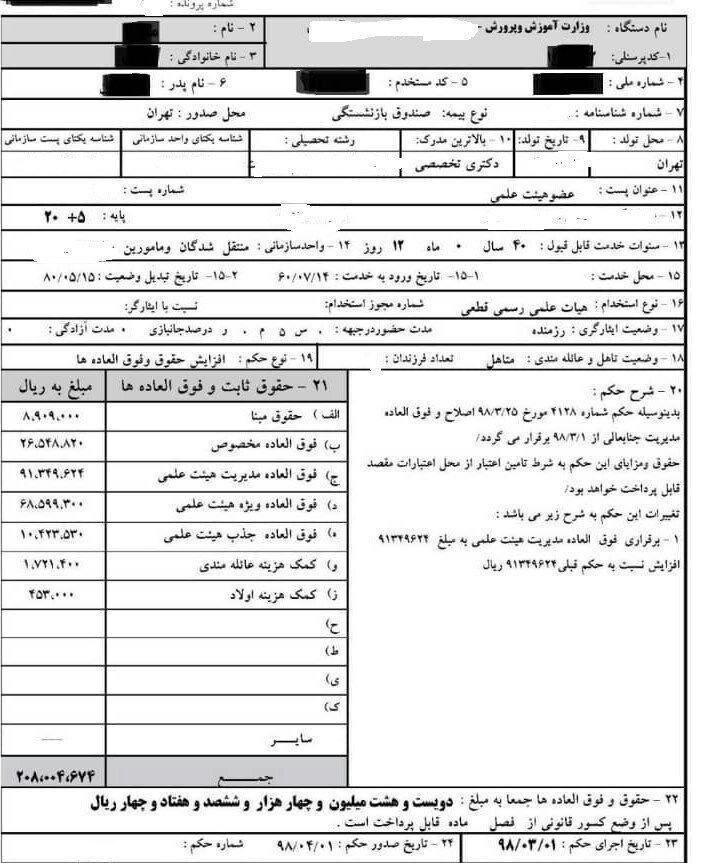 شماره پرونده :
نام دستگاه : وزارت آموزش وپرورش -
۱-کدپرسنلی:
۲ - نام :
۳ - نام خانوادگی :
۴ - شماره ملی :
۵ - کد مستخدم :
۶ - نام پدر :
۷ - شماره شناسنامه :
نوع بیمه: صندوق بازنشستگی
محل صدور : تهران
۸ - محل تولد :
۹- تاریخ تولد:
۱۰ - بالاترین مدرک:
رشته تحصیلی :
شناسه یکتای واحد سازمانی
شناسه یکتای پست سازمانی
تهران
دکتری تخصصی
۱۱ - عنوان پست : عضوهیئت علمی
شماره پست :
۱۲-
پایه : ۵+ ۲۰
۱۳ - سنوات خدمت قابل قبول : ۴۰ سال ۰ ماه ۱۲ روز
۱۴ - واحدسازمانی : منتقل شدگان ومامورین
۱۵ - محل خدمت :
۱۵-۱- تاریخ ورود به خدمت : ۶۰/۰۷/۱۴
۱۵-۲- تاریخ تبدیل وضعیت : ۸۰/۰۵/۱۵
۱۶ - نوع استخدام : هیات علمی رسمی قطعی
شماره مجوز استخدام:
نسبت با ایثارگر:
۱۷ - وضعیت ایثارگری : رزمنده
مدت حضوردرجبهه : ۰ س ۵ م ۰ ر درصدجانبازی ۰ مدت آزادگی : ۰
۱۸ - وضعیت تاهل و عائله مندی : متاهل
تعداد فرزندان :
۱۹ - نوع حکم : افزایش حقوق وفوق العاده ها
۲۰ - شرح حکم :
بدینوسیله حکم شماره ۴۱۲۸ مورخ ۹۸/۳/۲۵ اصلاح و فوق العاده
مدیریت جنابعالی از ۹۸/۳/۱ برقرار می گردد/
حقوق ومزایای این حکم به شرط تامین اعتبار از محل اعتبارات مقصد
قابل پرداخت خواهد بود/
تغییرات این حکم به شرح زیر می باشد :
۱ - برقراری فوق العاده مدیریت هیئت علمی به مبلغ ۹۱۳۴۹۶۲۴
افزایش نسبت به حکم قبلی ۹۱۳۴۹۶۲۴ ریال
۲۱ - حقوق ثابت و فوق العاده ها
مبلغ به ریال
الف ) حقوق مبنا ۸,۹۰۹,۰۰۰
ب) فوق العاده مخصوص ۲۶,۵۴۸,۸۲۰
ج) فوق العاده مدیریت هیئت علمی ۹۱,۳۴۹,۶۲۴
د) فوق العاده ویژه هیئت علمی ۶۸,۵۹۹,۳۰۰
ه) فوق العاده جذب هیئت علمی ۱۰,۴۲۳,۵۳۰
و) کمک هزینه عائله مندی ۱,۷۲۱,۴۰۰
ز) کمک هزینه اولاد ۴۵۳,۰۰۰
ح)
ط)
ی)
ک)
سایـــر ----
جمـــــع ۲۰۸,۰۰۴,۶۷۴
۲۲ - حقوق و فوق العاده ها جمعا به مبلغ : دویست و هشت میلیون و چهار هزار و ششصد و هفتاد و چهار ریال
پس از وضع کسور قانونی از فصل ماده قابل پرداخت است .
۲۳ - تاریخ اجرای حکم : ۹۸/۰۳/۰۱
۲۴ - تاریخ صدور حکم : ۹۸/۰۴/۰۱
شماره حکم :